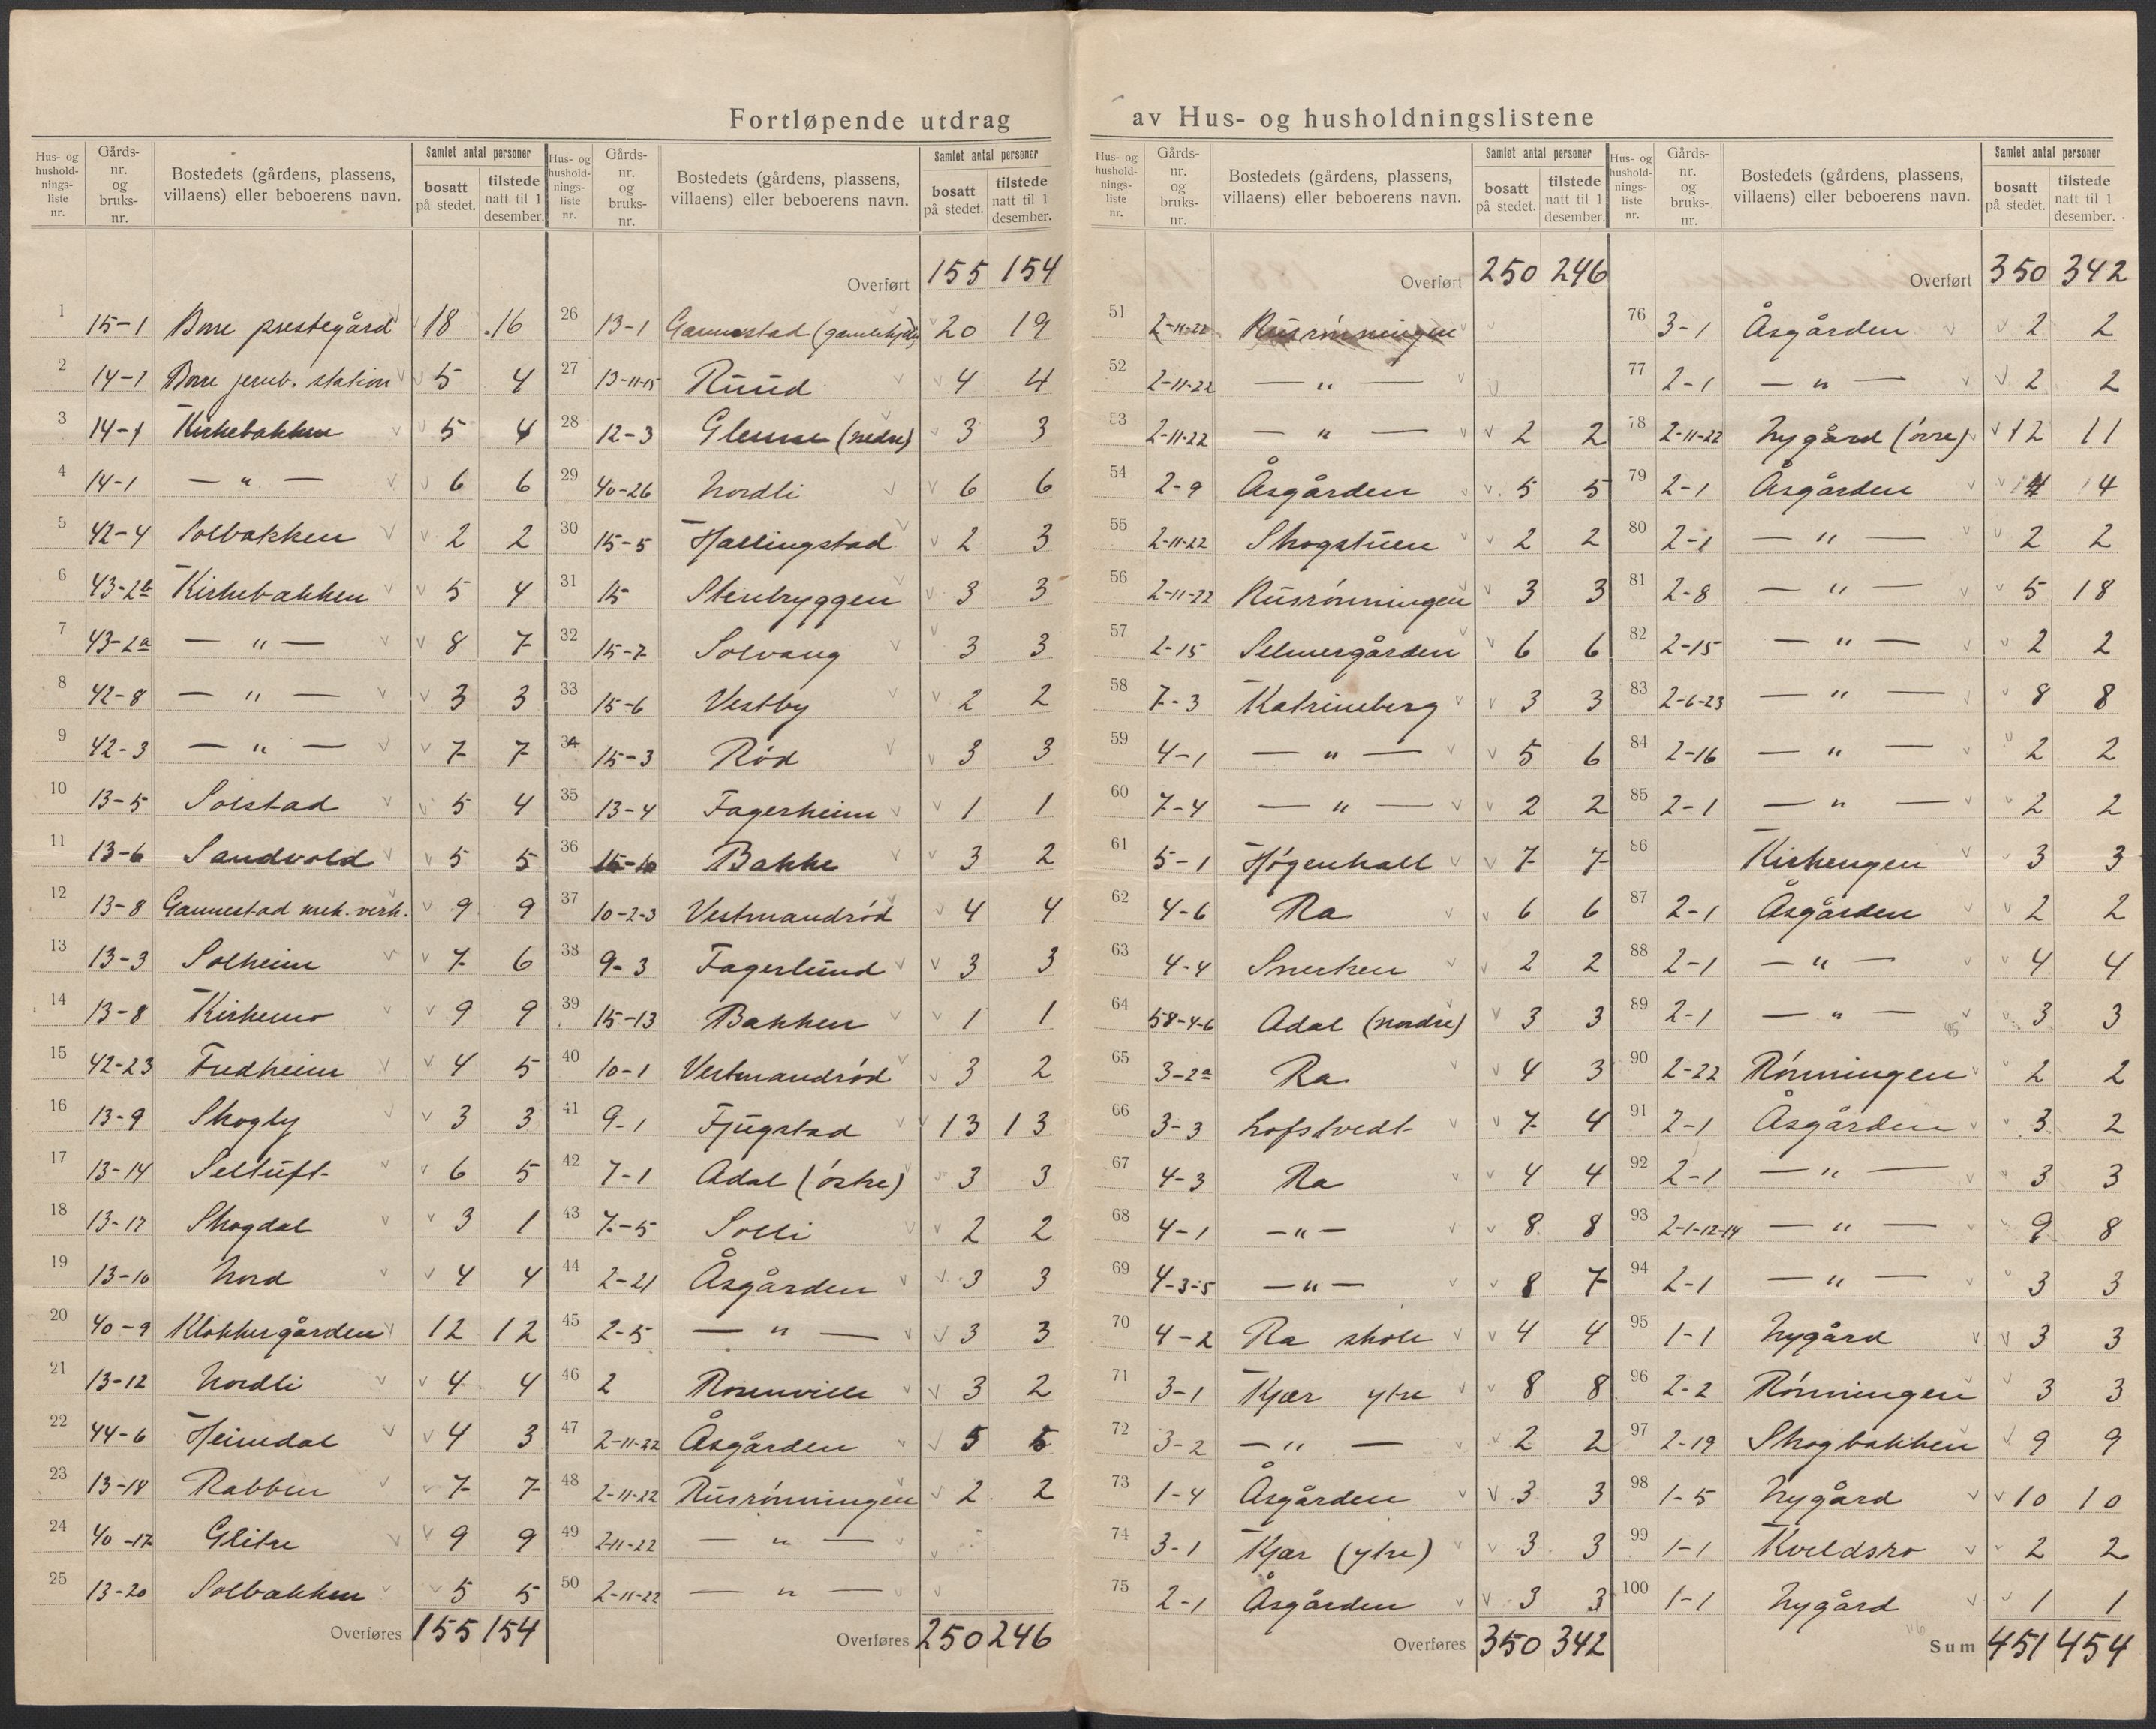 Fortløpende utdrag av Hus- og husholdningslistene
Hus- og hushold-nings-liste nr. | Gårds-nr. og bruks-nr. | Bostedets (gårdens, plassens, villaens) eller beboerens navn. | Samlet antal personer | bosatt på stedet. | tilstede natt til 1 desember.
1 15-1 Borre prestegård 18 16
2 14-1 Borre jernb. station 5 4
3 14-1 Kirkebakken 5 4
4 14-1 — " — 6 6
5 42-4 Solbakken 2 2
6 43-2b Kirkebakken 5 4
7 43-2a — " — 8 7
8 42-8 — " — 3 3
9 42-3 — " — 7 7
10 13-5 Solstad 5 4
11 13-6 Sandvold 5 5
12 13-8 Gannestad mek. verk. 9 9
13 13-3 Solheim 7 6
14 13-8 Kirkemo 9 9
15 42-23 Fredheim 4 5
16 13-9 Skogly 3 3
17 13-14 Seltuft 6 5
18 13-17 Skogdal 3 1
19 13-10 Nord 4 4
20 40-9 Klokkergården 12 12
21 13-12 Nordli 4 4
22 44-6 Heimdal 4 3
23 13-18 Rabben 7 7
24 40-17 Glitre 9 9
25 13-20 Solbakken 5 5
Overføres 155 154
Hus- og hushold-nings-liste nr. | Gårds-nr. og bruks-nr. | Bostedets (gårdens, plassens, villaens) eller beboerens navn. | Samlet antal personer | bosatt på stedet. | tilstede natt til 1 desember.
Overført 155 154
26 13-1 Gannestad 20 19
27 13-11-15 Ruud 4 4
28 12-3 Glenne (nedre) 3 3
29 40-26 Nordli 6 6
30 15-5 Hallingstad 2 3
31 15 Stenbryggen 3 3
32 15-7 Solvang 3 3
33 15-6 Vestby 2 2
34 15-3 Rød 3 3
35 13-4 Fagerheim 1 1
36 15-10 Bakke 3 2
37 10-2-3 Vestmandrød 4 4
38 9-3 Fagerlund 3 3
39 15-13 Bakken 1 1
40 10-1 Vestmandrød 3 2
41 9-1 Fjugstad 13 13
42 7-1 Adal (østre) 3 3
43 7-5 Solli 2 2
44 2-21 Åsgården 3 3
45 2-5 — " — 3 3
46 2 Rosenville 3 2
47 2-11-22 Åsgården 5 5
48 2-11-22 Rusrønningen 2 2
49 2-11-22 — " —
50 2-11-22 — " —
Overføres 250 246
Hus- og hushold-nings-liste nr. | Gårds-nr. og bruks-nr. | Bostedets (gårdens, plassens, villaens) eller beboerens navn. | Samlet antal personer | bosatt på stedet. | tilstede natt til 1 desember.
Overført 250 246
51 2-11-22 Rusrønningen
52 2-11-22 — " —
53 2-11-22 — " — 2 2
54 2-9 Åsgården 5 5
55 2-11-22 Skogstuen 2 2
56 2-11-22 Rusrønningen 3 3
57 2-15 Selmergården 6 6
58 7-3 Katrineberg 3 3
59 4-1 — " — 5 6
60 7-4 — " — 2 2
61 5-1 Høgenhall 7 7
62 4-6 Ra 6 6
63 4-4 Snerken 2 2
64 58-4-6 Adal (nordre) 3 3
65 3-2a Ra 4 3
66 3-3 Lofstvedt 7 4
67 4-3 Ra 4 4
68 4-1 — " — 8 8
69 4-3-5 — " — 8 7
70 4-2 Ra skole 4 4
71 3-1 Kjær ytre 8 8
72 3-2 — " — 2 2
73 1-4 Åsgården 3 3
74 3-1 Kjær (ytre) 3 3
75 2-1 Åsgården 3 3
Overføres 350 342
Hus- og hushold-nings-liste nr. | Gårds-nr. og bruks-nr. | Bostedets (gårdens, plassens, villaens) eller beboerens navn. | Samlet antal personer | bosatt på stedet. | tilstede natt til 1 desember.
Overført 350 342
76 3-1 Åsgården 2 2
77 2-1 — " — 2 2
78 2-11-22 Nygård (øvre) 12 11
79 2-1 Åsgården 4 4
80 2-1 — " — 2 2
81 2-8 — " — 5 18
82 2-15 — " — 2 2
83 2-6-23 — " — 8 8
84 2-16 — " — 2 2
85 2-1 — " — 2 2
86 Kirkengen 3 3
87 2-1 Åsgården 2 2
88 2-1 — " — 4 4
89 2-1 — " — 3 3
90 2-22 Rønningen 2 2
91 2-1 Åsgården 3 2
92 2-1 — " — 3 3
93 2-1-12-14 — " — 9 8
94 2-1 — " — 3 3
95 1-1 Nygård 3 3
96 2-2 Rønningen 3 3
97 2-19 Skogbakken 9 9
98 1-5 Nygård 10 10
99 1-1 Kveldsro 2 2
100 1-1 Nygård 1 1
Sum 451 454